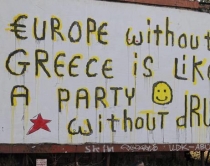 €UROPE without
GREECE is LiKE
A PARTY
without dRU